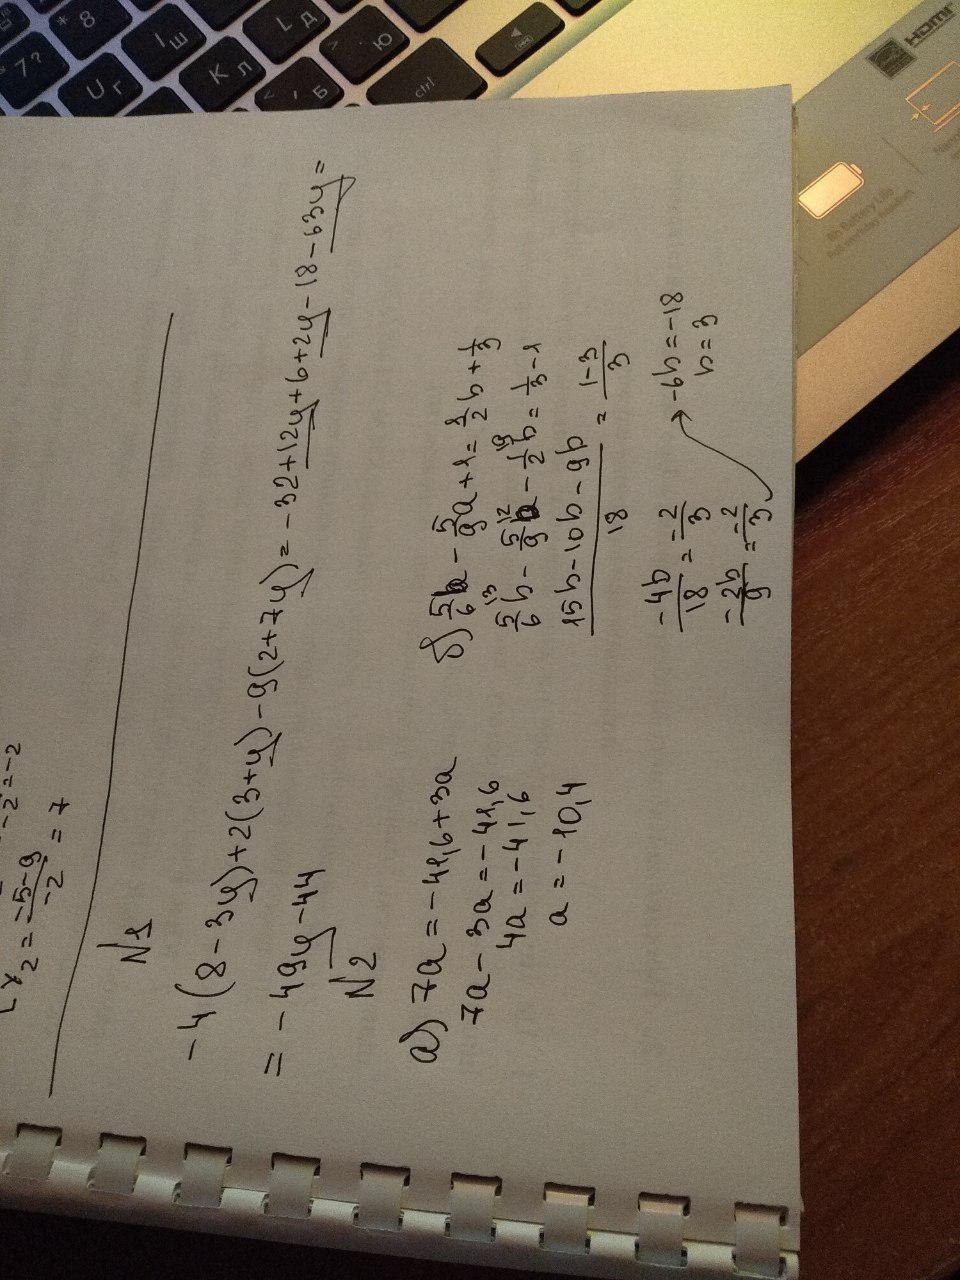 x₂ = (-5-9)/(-2) = 7
-2 = -2
N1
-4(8-3y)+2(3+y)-9(2+7y)=-32+12y+6+2y-18-63y=
=-49y-44
N2
а) 7a=-41,6+3a
7a-3a=-41,6
4a=-41,6
a=-10,4
б) 5/6b - 5/9a+1=1/2b+1/3
5/6b - 5/9b - 1/2b = 1/3-1
(15b-10b-9b)/18 = (1-3)/3
-4b/18 = -2/3
-2b/9 = -2/3
-6b=-18
b=3
* 8
7 ?
I Ш
L Д
U Г
K Л
Ю
Б
ctrl
HDMI